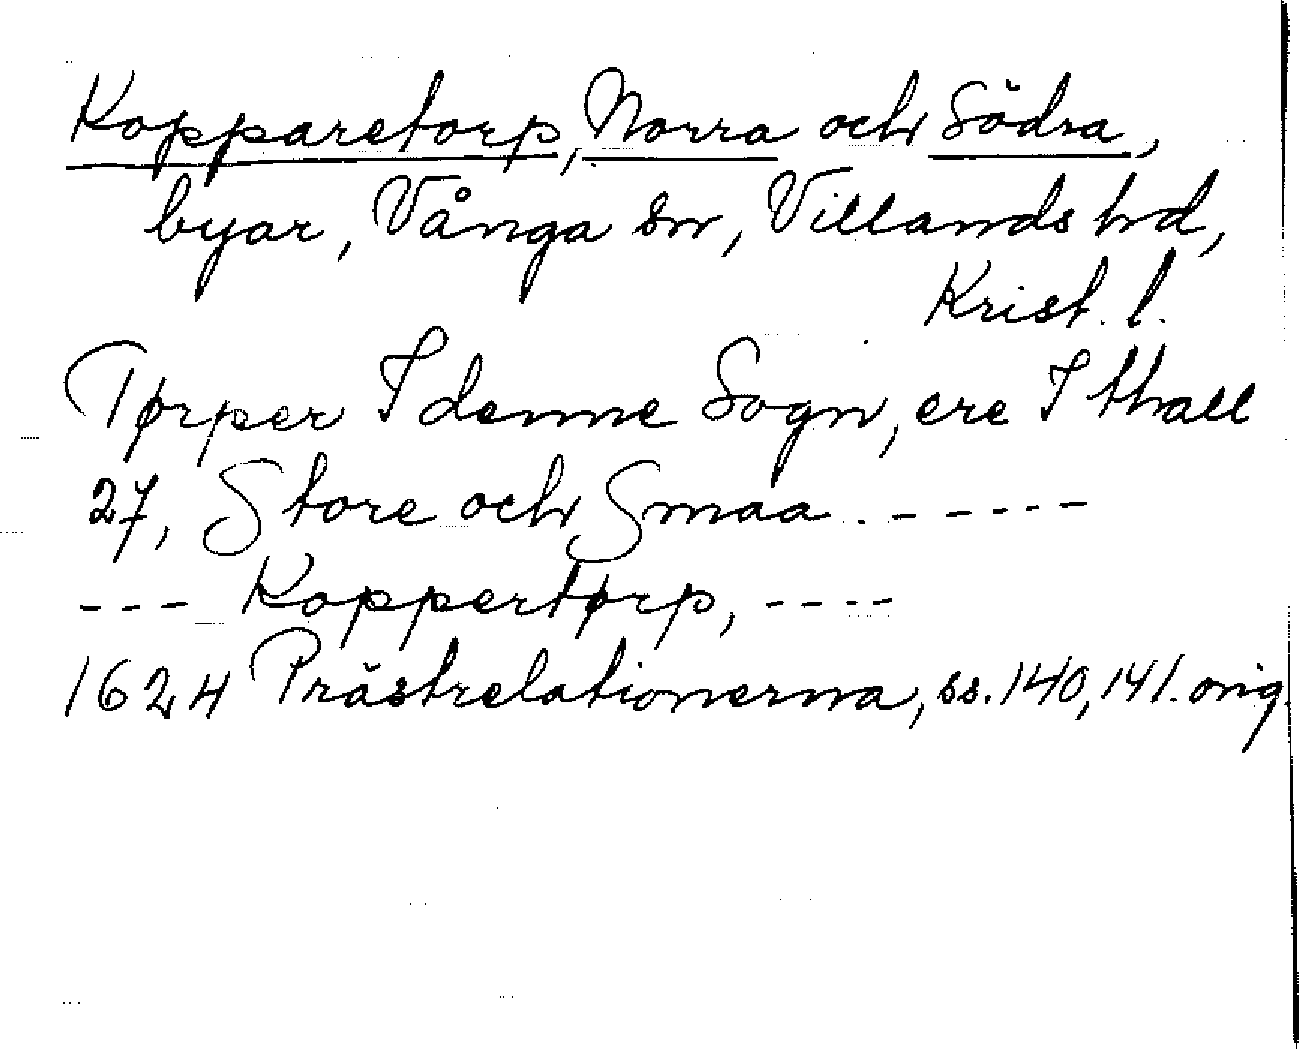 Kopparetorp, Norra och Södra,
byar, Vånga sn, Villands hd,
Krist. l.
Tørper I denne Sogn, ere I thall
27, Store och Smaa . - - - - - -
- - - Koppertørp, - - - -
1624 Prästrelationerna, ss. 140, 141. orig.